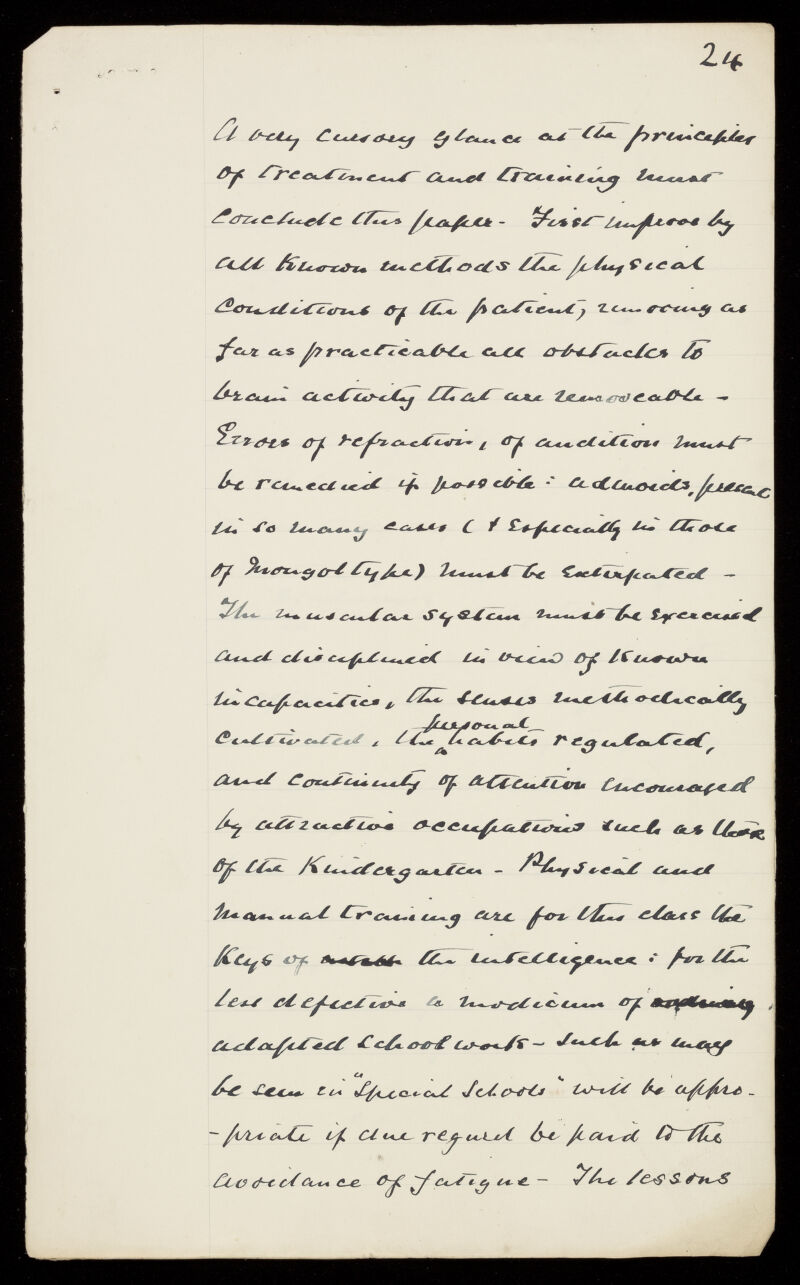 24
A very cursory glance at the principles
of treatment and training must
conclude this paper - First improve by
all known methods the physical
conditions of the patient, removing as
far as practicable all obstacles to
brain activity that are removeable -
Errors of refraction, of audition must
be remedied if possible : adenoids, present
in so many cases (& Especially in those
of Mongol type) must be extirpated -
The muscular system must be exercised
and disciplined in view of known
incapacities, the senses methodically
personal
cultivated, the ^ habits regulated,
and continuity of attention encouraged
by attractive occupations such as those
of the Kindergarten - Physical and
manual training are for this class the
Keys of the intelligence : for the
less defective a modicum of
adapted school work - such as may
be seen in "Special Schools" will be appro-
-priate if due regard be paid to the
avoidance of fatigue - The lessons